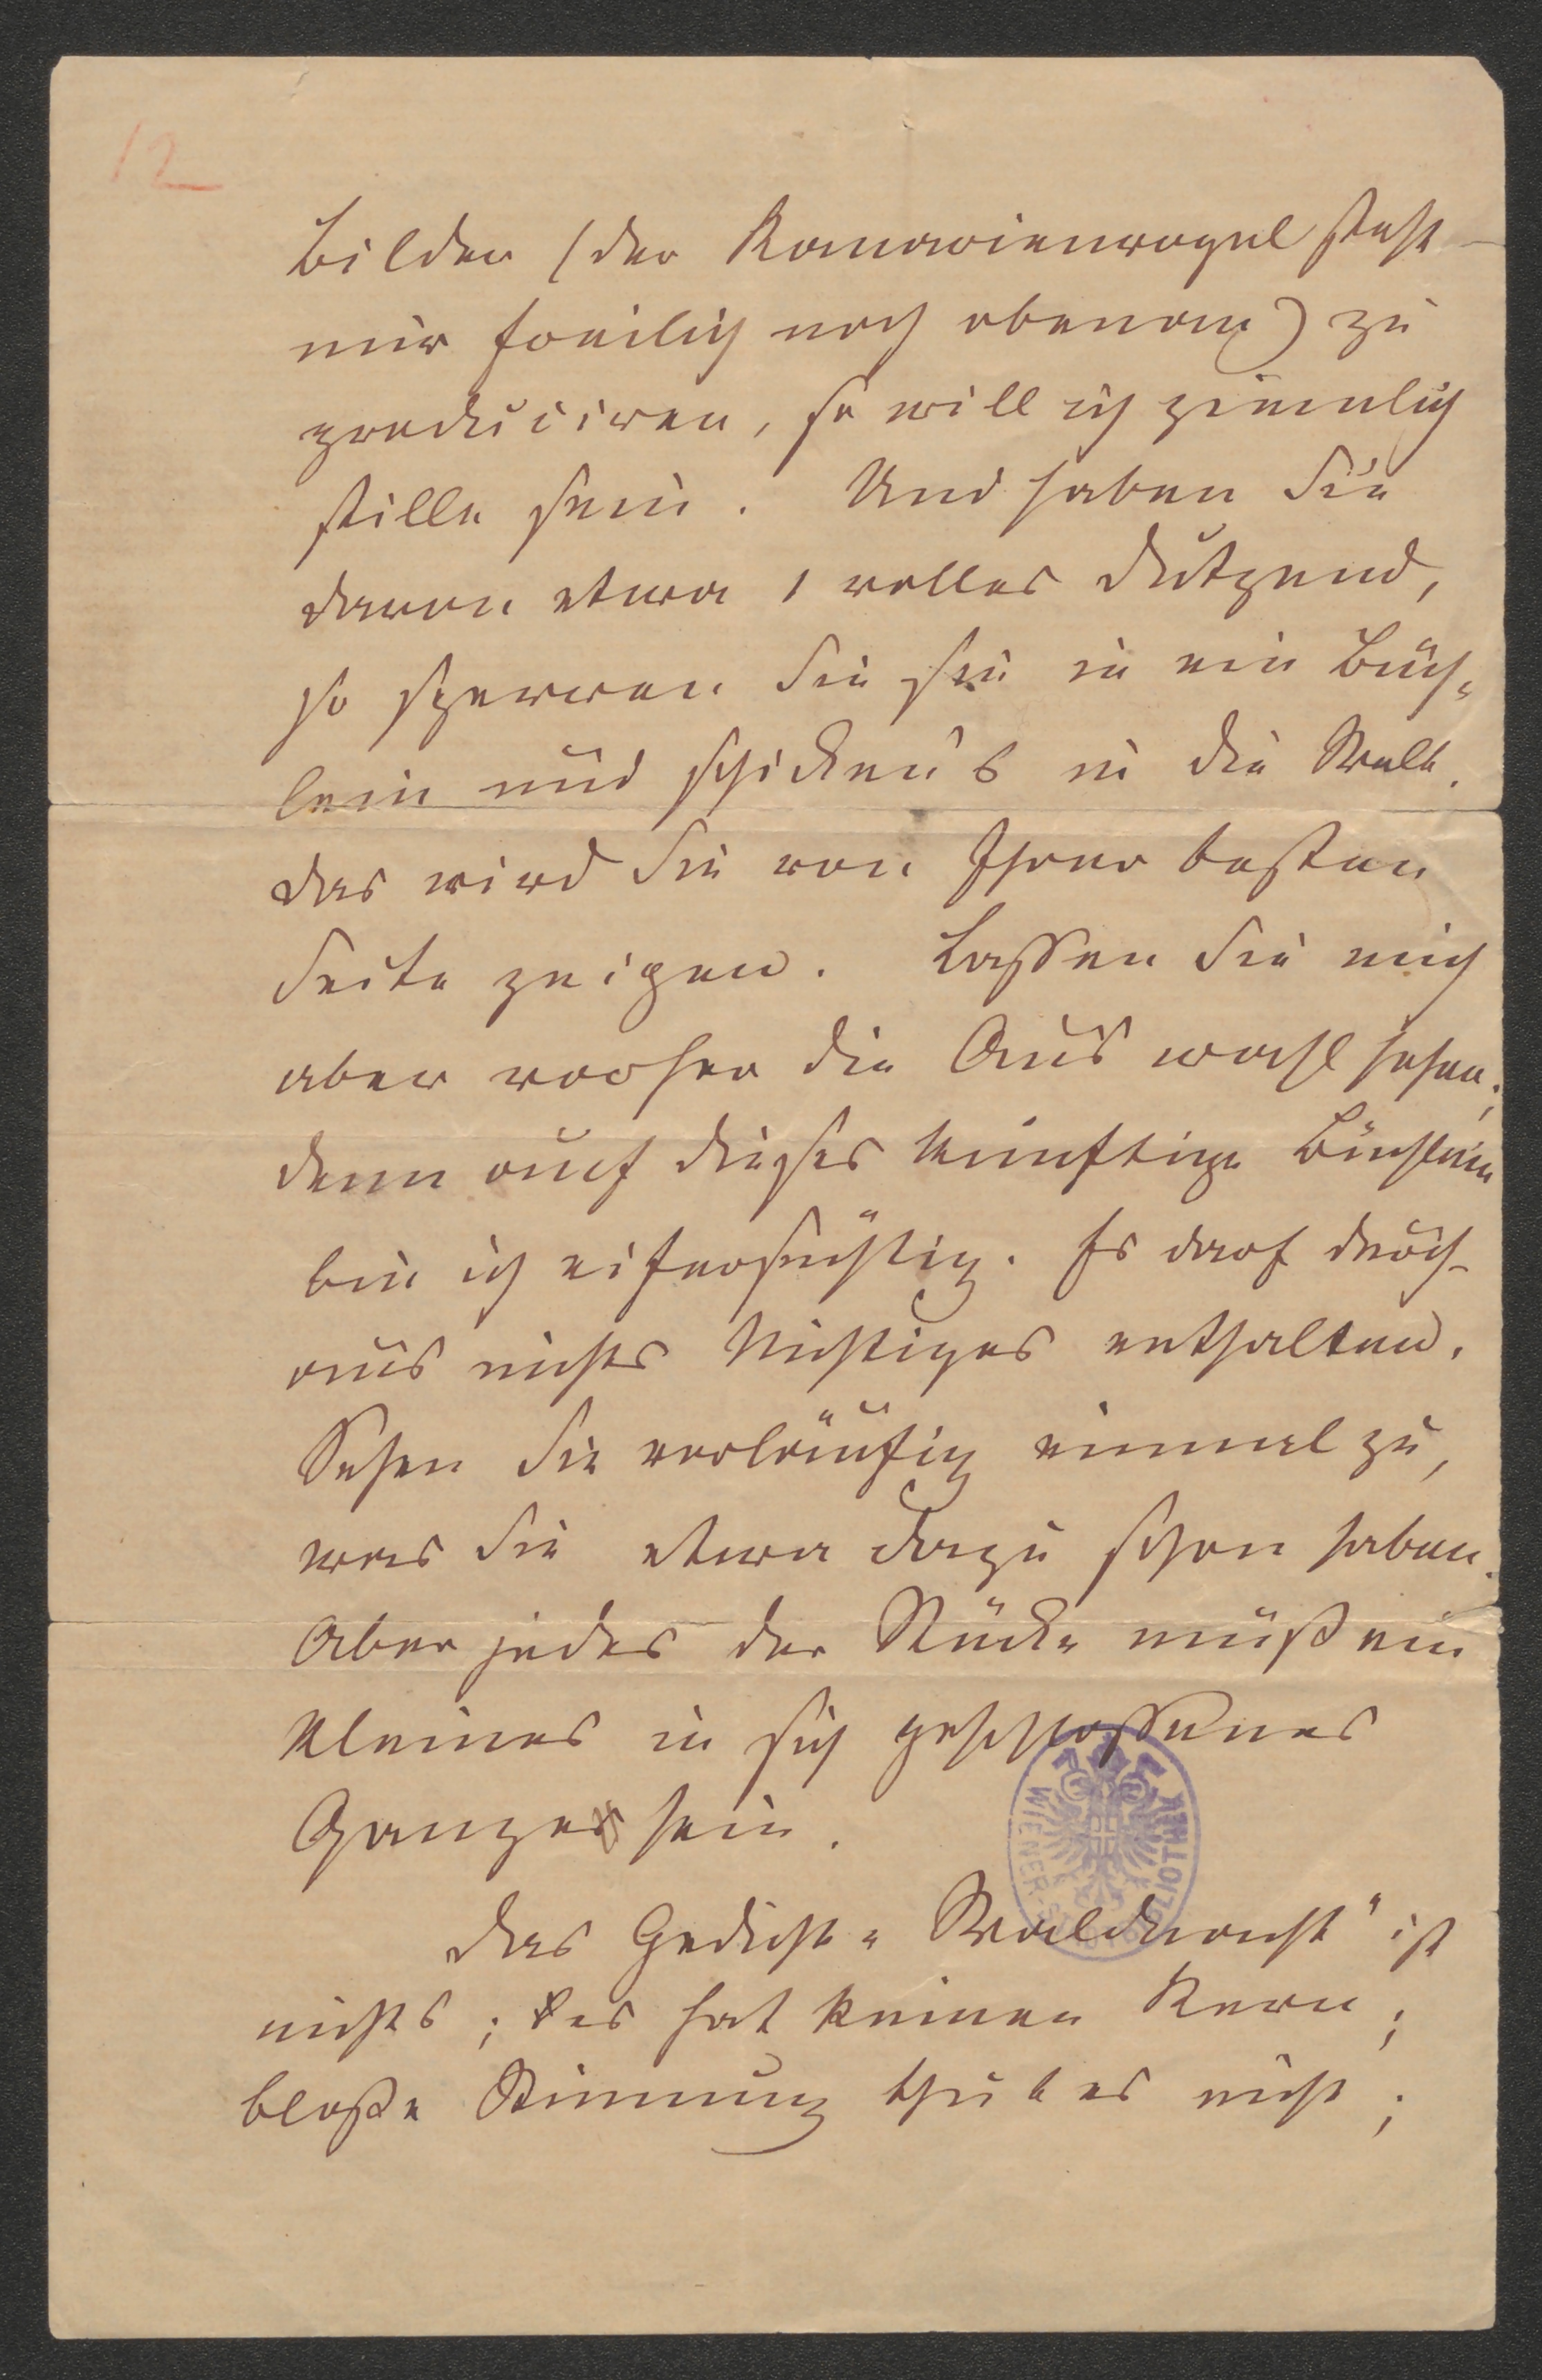 12
Bilder (der Kanarienvogel steht
mir freilich noch obenan) zu
produciren, so will ich ziemlich
stille sein. Und haben Sie
davon etwa 1 volles Dutzend,
so sperren Sie sie in ein Büch-
lein und schicken's in die Welt.
Das wird Sie von Ihrer besten
Seite zeigen. Lassen Sie mich
aber vorher die Auswahl sehen;
denn auf dieses künftige Büchlein
bin ich eifersüchtig. Es darf durch-
aus nichts Nichtiges enthalten.
Sehen Sie vorläufig einmal zu,
was Sie etwa dazu schon haben.
Aber jedes der Stücke muß ein
kleines in sich geschlossenes
Ganzes sein.
WIENER-STADTBIBLIOTHEK
Das Gedicht „Waldnacht" ist
nichts; es hat keinen Kern;
bloße Stimmung thut es nicht;